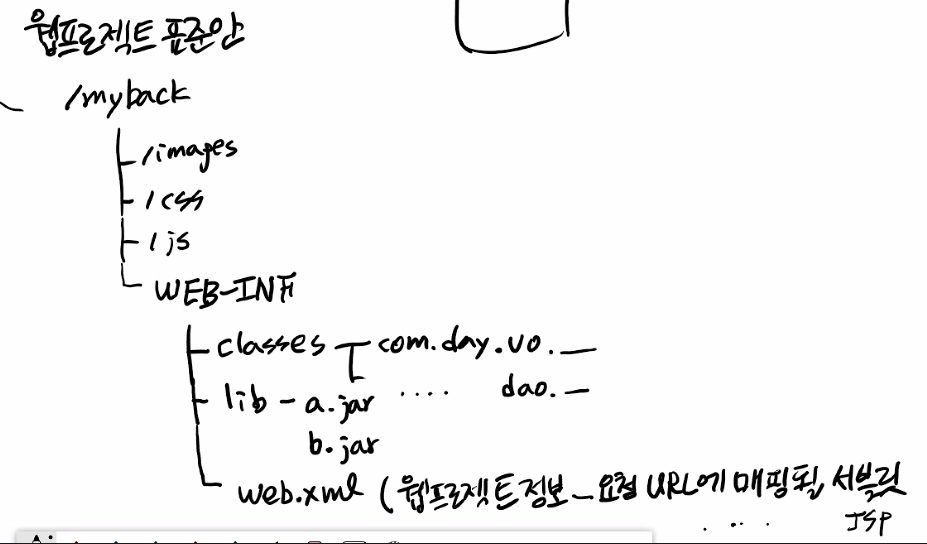 웹프로젝트 표준안
/myback
/images
/css
/js
WEB-INF
classes com.day.vo.__
lib - a.jar .... dao.__
b.jar
web.xml (웹프로젝트정보_요청URL에 매핑될 서블릿
... JSP